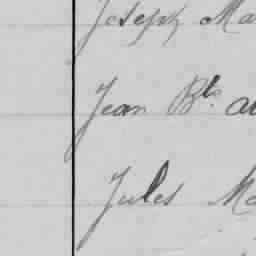 Joseph Ma
Jean Bte au
Jules Ma